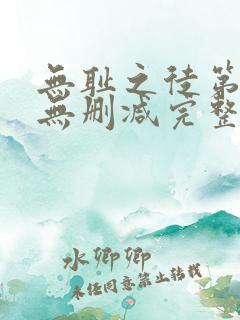 無耻之徒第
無删减完整
水卿卿
未经同意禁止转载